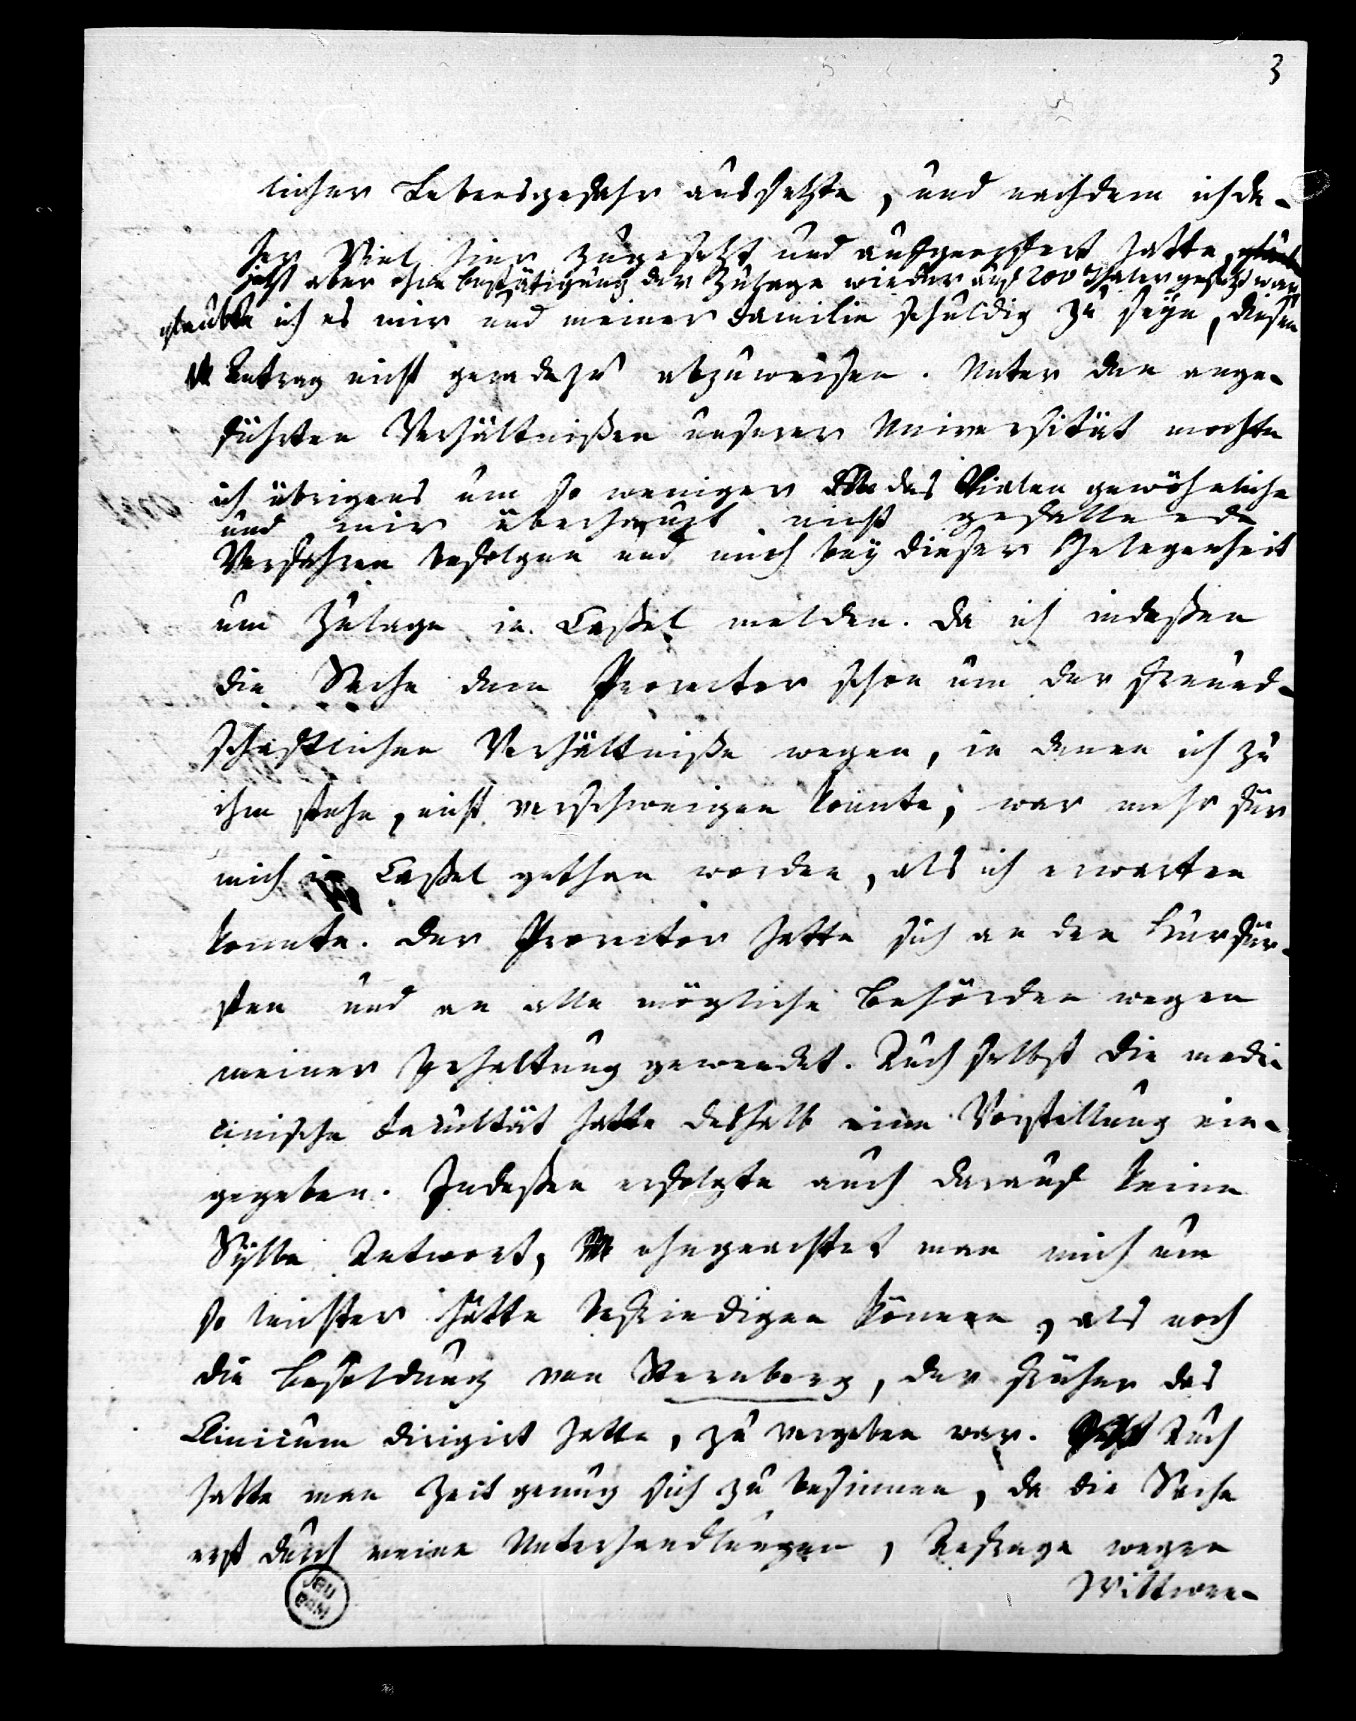 3
licher Lebensgefahr aussetzte, und nachdem ich da-
her Viel hier zugesetzt und aufgeopfert hatte,
jetzt aber ohne Bestätigung der Zulage wieder auf 200 Thaler gesetzt war,
glaubte ich es mir und meiner Familie schuldig zu seyn, diesen
Antrag nicht geradezu abzuweisen. Unter den ange-
führten Verhältnißen unserer Universität mochte
ich übrigens um so weniger das Vielen gewöhnliche
und mir überhaupt nicht gefallende
Verfahren befolgen und mich bey dieser Gelegenheit
um Zulage in Caßel melden. Da ich indeßen
die Sache dem Prorector schon um der freund-
schaftlichen Verhältniße wegen, in denen ich zu
ihm stehe, nicht verschweigen konnte; war mehr für
mich in Caßel gethan worden, als ich erwarten
konnte. Der Prorector hatte sich an den Kurfür-
sten und an alle mögliche Behörden wegen
meiner Erhaltung gewendet. Auch selbst die medi-
cinische Facultät hatte deshalb eine Vorstellung ein-
gegeben. Indeßen erfolgte auch darauf keine
Sylbe Antwort, ohngeachtet man mich um
so leichter hätte befriedigen können, als noch
die Besoldung von Sternberg, der früher das
Clinicum dirigirt hatte, zu vergeben war. Auch
hatte man Zeit genug sich zu besinnen, da die Sache
erst durch meine Unterhandlungen, Anfrage wegen
Wittwen-